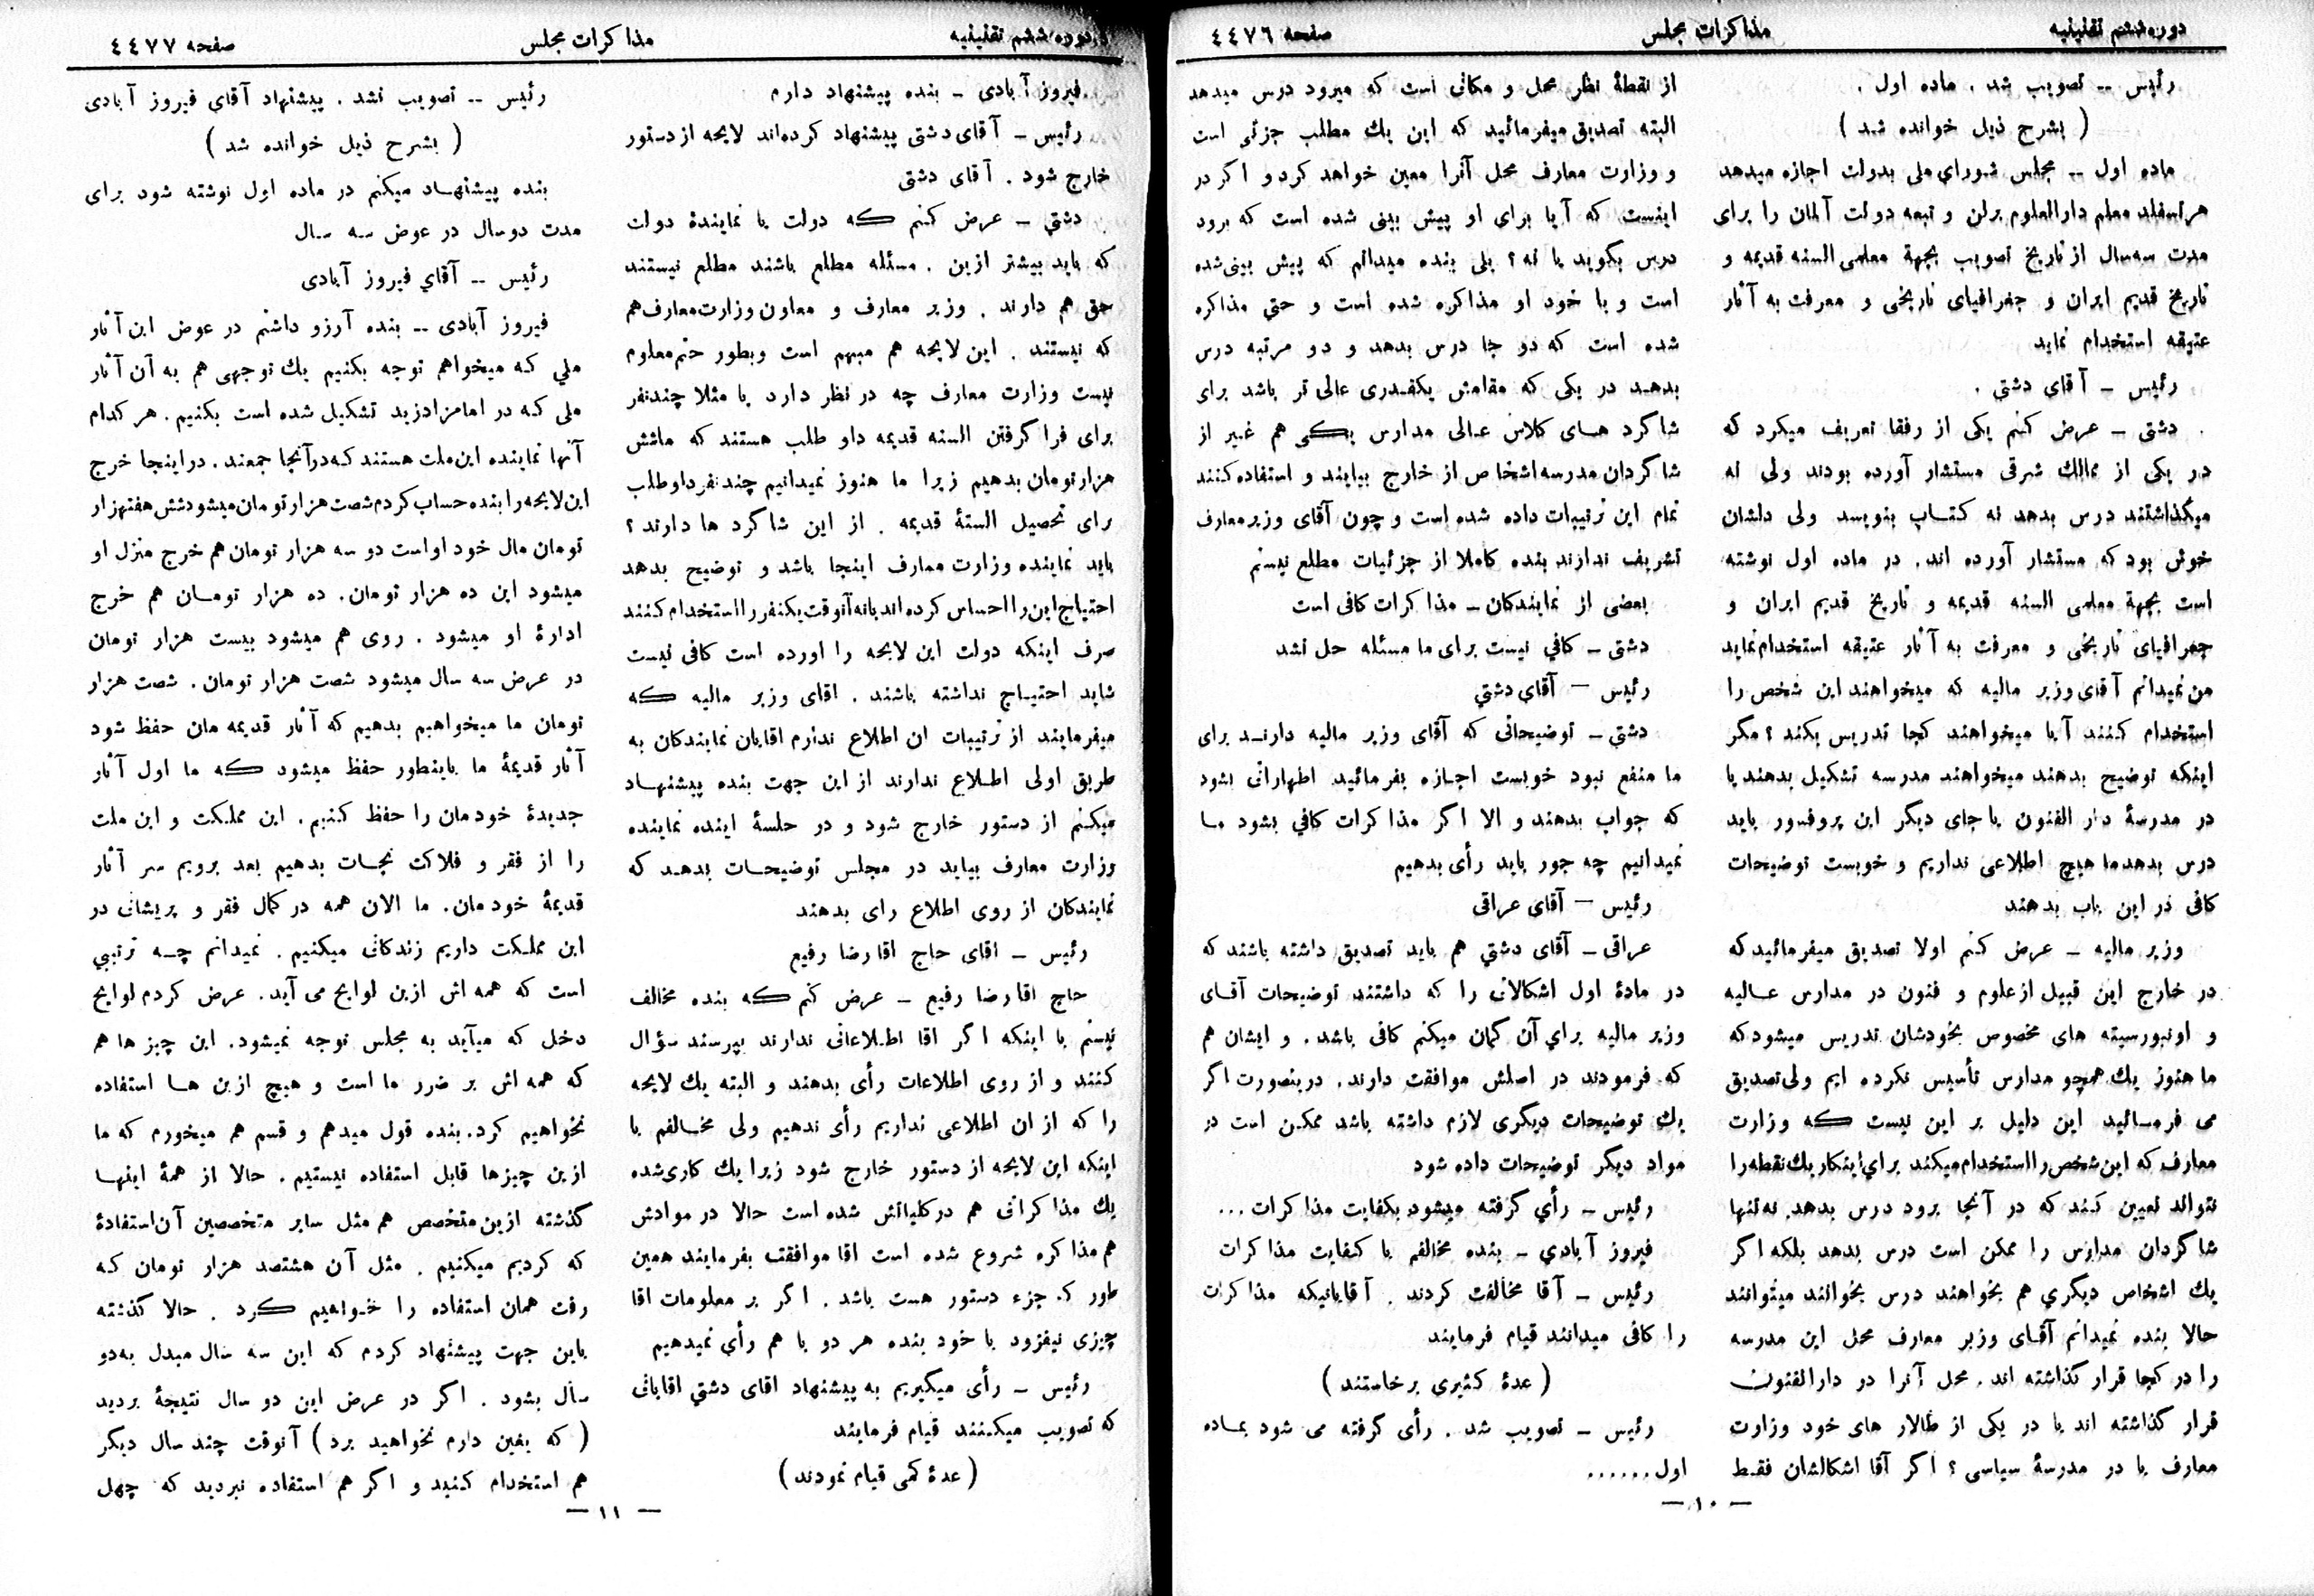 دوره ششم تقنینیه
مذاکرات مجلس
صفحه ٤٤٧٦
رئیس -- تصویب شد . ماده اول .
( بشرح ذیل خوانده شد )
ماده اول -- مجلس شورای ملی بدولت اجازه میدهد
هرتسفلد معلم دارالعلوم برلن و تبعه دولت آلمان را برای
مدت سه سال از تاریخ تصویب بجهة معلمی السنه قدیمه و
تاریخ قدیم ایران و جغرافیای تاریخی و معرفت به آثار
عتیقه استخدام نماید
رئیس - آقای دشتی .
دشتی - عرض کنم یکی از رفقا تعریف میکرد که
در یکی از ممالك شرقی مستشار آورده بودند ولی نه
میگذاشتند درس بدهد نه کتاب بنویسد ولی دلشان
خوش بود که مستشار آورده اند . در ماده اول نوشته
است بجهة معلمی السنه قدیمه و تاریخ قدیم ایران و
جغرافیای تاریخی و معرفت به آثار عتیقه استخدام نماید
من نمیدانم آقای وزیر مالیه که میخواهند این شخص را
استخدام کنند آیا میخواهند کجا تدریس بکند ؟ مگر
اینکه توضیح بدهند میخواهند مدرسه تشکیل بدهند یا
در مدرسهٔ دار الفنون یا جای دیگر این پروفسور باید
درس بدهد ما هیچ اطلاعی نداریم و خوبست توضیحات
کافی در این باب بدهند
وزیر مالیه - عرض کنم اولا تصدیق میفرمائید که
در خارج این قبیل از علوم و فنون در مدارس عالیه
و اونیورسیته های مخصوص بخودشان تدریس میشود که
ما هنوز یك همچو مدارس تأسیس نکرده ایم ولی تصدیق
می فرمائید این دلیل بر این نیست که وزارت
معارف که این شخص را استخدام میکند برای اینکار یك نقطه را
نتواند تعیین کند که در آنجا برود درس بدهد . نه تنها
شاگردان مدارس را ممکن است درس بدهد بلکه اگر
یك اشخاص دیگری هم بخواهند درس بخوانند میتوانند
حالا بنده نمیدانم آقای وزیر معارف محل این مدرسه
را در کجا قرار گذاشته اند . محل آنرا در دارالفنون
قرار گذاشته اند یا در یکی از طالار های خود وزارت
معارف یا در مدرسهٔ سیاسی ؟ اگر آقا اشکالشان فقط
از نقطهٔ نظر محل و مکانی است که میرود درس میدهد
البته تصدیق میفرمائید که این یك مطلب جزئی است
و وزارت معارف محل آنرا معین خواهد کرد و اگر در
اینست که آیا برای او پیش بینی شده است که برود
درس بگوید یا نه ؟ بلی بنده میدانم که پیش بینی شده
است و با خود او مذاکره شده است و حتی مذاکره
شده است که دو جا درس بدهد و دو مرتبه درس
بدهد در یکی که مقامش یکقدری عالی تر باشد برای
شاگرد های کلاس عالی مدارس یکی هم غیر از
شاگردان مدرسه اشخاص از خارج بیایند و استفاده کنند
تمام این ترتیبات داده شده است و چون آقای وزیر معارف
تشریف ندارند بنده کاملا از جزئیات مطلع نیستم
بعضی از نمایندکان - مذاکرات کافی است
دشتی - کافی نیست برای ما مسئله حل نشد
رئیس - آقای دشتی
دشتی - توضیحاتی که آقای وزیر مالیه دارند برای
ما منفع نبود خوبست اجازه بفرمائید اظهاراتی بشود
که جواب بدهند و الا اگر مذاکرات کافی بشود ما
نمیدانیم چه جور باید رأی بدهیم
رئیس - آقای عراقی
عراقی - آقای دشتی هم باید تصدیق داشته باشند که
در مادهٔ اول اشکالاتی را که داشتند توضیحات آقای
وزیر مالیه برای آن گمان میکنم کافی باشد . و ایشان هم
که فرمودند در اصلش موافقت دارند . در بنصورت اگر
یك توضیحات دیگری لازم داشته باشد ممکن است در
مواد دیگر توضیحات داده شود
رئیس - رأی گرفته میشود بکفایت مذاکرات ...
فیروز آبادی - بنده مخالفم با کفایت مذاکرات
رئیس - آقا مخالفت کردند . آقایانیکه مذاکرات
را کافی میدانند قیام فرمایند
( عدهٔ کثیری برخاستند )
رئیس - تصویب شد . رأی گرفته می شود بماده
اول ......
- ١٠ -
دوره ششم تقنینیه
مذاکرات مجلس
صفحه ٤٤٧٧
فیروز آبادی - بنده پیشنهاد دارم
رئیس - آقای دشتی پیشنهاد کرده‌اند لایحه از دستور
خارج شود . آقای دشتی
دشتی - عرض کنم که دولت یا نمایندهٔ دولت
که باید بیشتر ازین . مسئله مطلع باشند مطلع نیستند
حق هم دارند . وزیر معارف و معاون وزارت معارف هم
که نیستند . این لایحه هم مبهم است وبطور حتم معلوم
نیست وزارت معارف چه در نظر دارد یا مثلا چندنفر
برای فرا گرفتن السنه قدیمه داو طلب هستند که ماشش
هزار تومان بدهیم زیرا ما هنوز نمیدانیم چند نفر داوطلب
برای تحصیل السنهٔ قدیمه . از این شاکرد ها دارند ؟
باید نماینده وزارت معارف اینجا باشد و توضیح بدهد
احتیاج این را احساس کرده اند یا نه آنوقت یکنفر را استخدام کنند
صرف اینکه دولت این لایحه را اورده است کافی نیست
شاید احتیاج نداشته باشند . اقای وزیر مالیه که
میفرمایند از ترتیبات ان اطلاع ندارم اقایان نمایندکان به
طریق اولی اطلاع ندارند از این جهت بنده پیشنهاد
میکنم از دستور خارج شود و در جلسهٔ اینده نماینده
وزارت معارف بیاید در مجلس توضیحات بدهد که
نمایندکان از روی اطلاع رای بدهند
رئیس - اقای حاج اقا رضا رفیع
حاج اقا رضا رفیع - عرض کنم که بنده مخالف
نیستم با اینکه اگر اقا اطلاعاتی ندارند بپرسند سؤال
کنند و از روی اطلاعات رأی بدهند و البته یك لایحه
را که از ان اطلاعی نداریم رأی ندهیم ولی مخالفم با
اینکه این لایحه از دستور خارج شود زیرا یك کاری شده
یك مذاکراتی هم در کلیاتش شده است حالا در موادش
هم مذاکره شروع شده است اقا موافقت بفرمایند همین
طور که جزء دستور هست باشد . اگر بر معلومات اقا
چیزی نیفزود با خود بنده هر دو با هم رأی نمیدهیم
رئیس - رأی میگیریم به پیشنهاد اقای دشتی اقایانی
که تصویب میکنند قیام فرمایند
( عدهٔ کمی قیام نمودند )
رئیس -- تصویب نشد . پیشنهاد آقای فیروز آبادی
( بشرح ذیل خوانده شد )
بنده پیشنهاد میکنم در ماده اول نوشته شود برای
مدت دوسال در عوض سه سال
رئیس -- آقای فیروز آبادی
فیروز آبادی -- بنده آرزو داشتم در عوض این آثار
ملی که میخواهم توجه بکنیم یك توجهی هم به آن آثار
ملی که در امامزادزید تشکیل شده است بکنیم . هر کدام
آنها نماینده این ملت هستند که در آنجا جمعند . در اینجا خرج
این لایحه را بنده حساب کردم شصت هزار تومان میشود شش هفتهزار
تومان مال خود او است دو سه هزار تومان هم خرج منزل او
میشود این ده هزار تومان . ده هزار تومان هم خرج
ادارهٔ او میشود . روی هم میشود بیست هزار تومان
در عرض سه سال میشود شصت هزار تومان . شصت هزار
تومان ما میخواهیم بدهیم که آثار قدیمه مان حفظ شود
آثار قدیمهٔ ما باینطور حفظ میشود که ما اول آثار
جدیدهٔ خودمان را حفظ کنیم . این مملکت و این ملت
را از فقر و فلاکت نجات بدهیم بعد برویم سر آثار
قدیمهٔ خودمان . ما الان همه در کمال فقر و پریشانی در
این مملکت داریم زندگانی میکنیم . نمیدانم چه ترتیبی
است که همه اش ازین لوایح می آید . عرض کردم لوایح
دخل که میآید به مجلس توجه نمیشود . این چیز ها هم
که همه اش بر ضرر ما است و هیچ ازین ها استفاده
نخواهیم کرد . بنده قول میدهم و قسم هم میخورم که ما
ازین چیزها قابل استفاده نیستیم . حالا از همهٔ اینها
گذشته ازین متخصص هم مثل سایر متخصصین آن استفادهٔ
که کردیم میکنیم . مثل آن هشتصد هزار تومان که
رفت همان استفاده را خواهیم کرد . حالا گذشته
باین جهت پیشنهاد کردم که این سه سال مبدل به دو
سال بشود . اگر در عرض این دو سال نتیجهٔ بردید
( که یقین دارم نخواهید برد ) آنوقت چند سال دیگر
هم استخدام کنید و اگر هم استفاده نبردید که چهل
- ١١ -